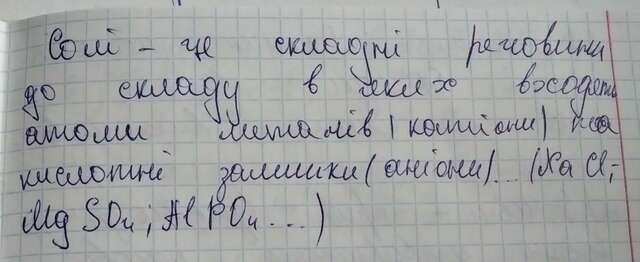 Солі – це складні речовини
до складу в яких входять
атоми металів (катіони) та
кислотні залишки (аніони)... (NaCl;
MgSO4; AlPO4...)